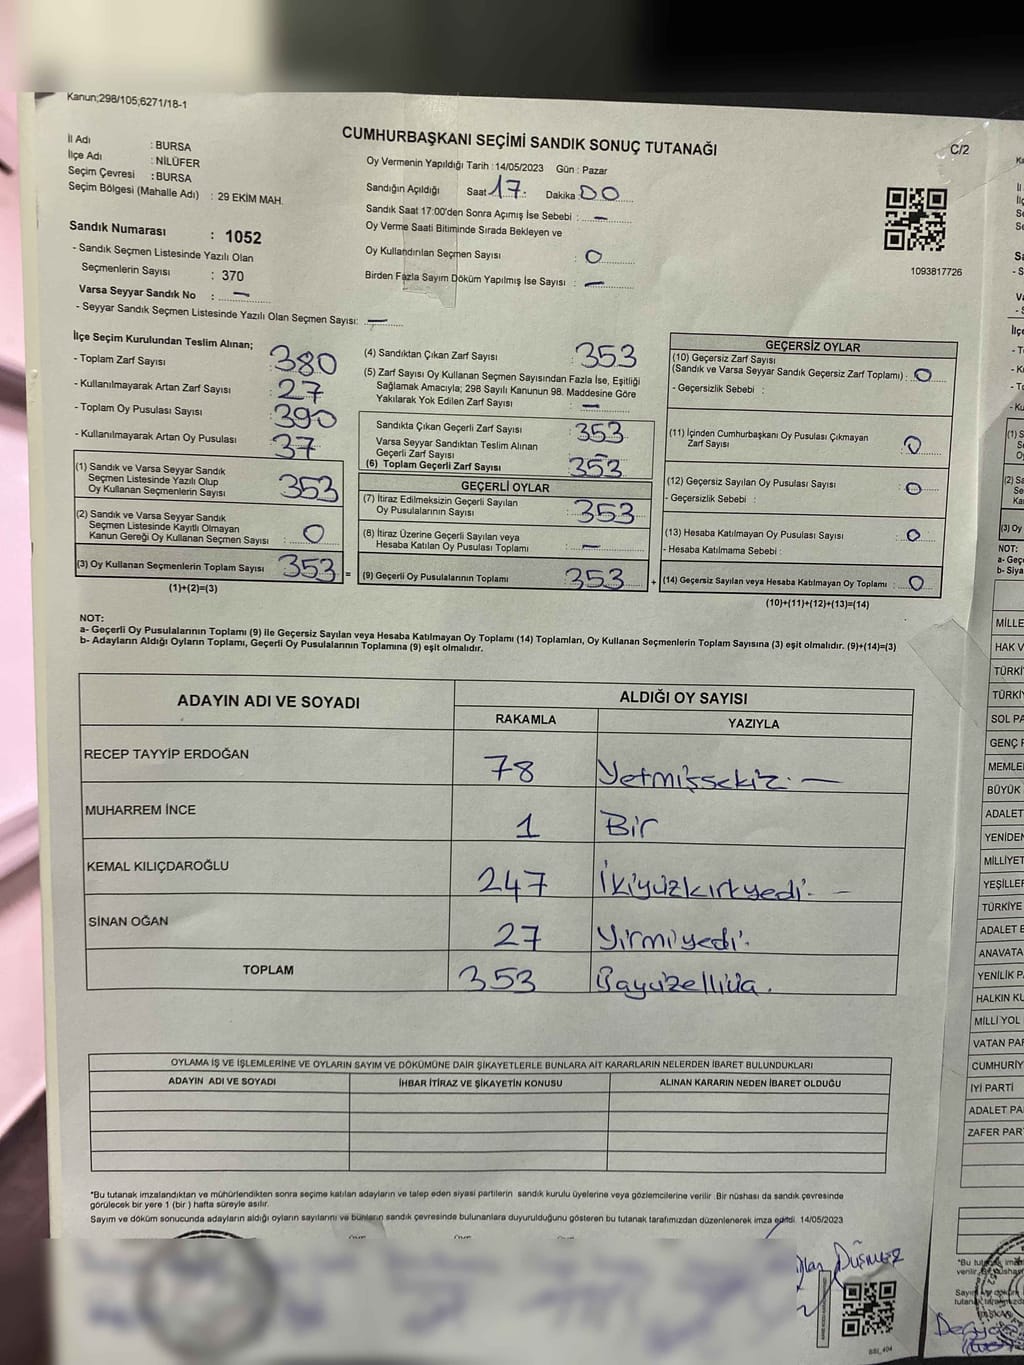 Kanun;298/105;6271/18-1
CUMHURBAŞKANI SEÇİMİ SANDIK SONUÇ TUTANAĞI
C/2
İl Adı : BURSA
İlçe Adı : NİLÜFER
Seçim Çevresi : BURSA
Seçim Bölgesi (Mahalle Adı) : 29 EKİM MAH.
Oy Vermenin Yapıldığı Tarih : 14/05/2023 Gün : Pazar
Sandığın Açıldığı Saat 17. Dakika 00
Sandık Saat 17:00'den Sonra Açımış İse Sebebi : —
Oy Verme Saati Bitiminde Sırada Bekleyen ve
Oy Kullandırılan Seçmen Sayısı : 0
Birden Fazla Sayım Döküm Yapılmış İse Sayısı : —
1093817726
Sandık Numarası : 1052
- Sandık Seçmen Listesinde Yazılı Olan
Seçmenlerin Sayısı : 370
Varsa Seyyar Sandık No : —
- Seyyar Sandık Seçmen Listesinde Yazılı Olan Seçmen Sayısı: —
İlçe Seçim Kurulundan Teslim Alınan;
- Toplam Zarf Sayısı : 380
- Kullanılmayarak Artan Zarf Sayısı : 27
- Toplam Oy Pusulası Sayısı : 390
- Kullanılmayarak Artan Oy Pusulası : 37
(1) Sandık ve Varsa Seyyar Sandık
Seçmen Listesinde Yazılı Olup
Oy Kullanan Seçmenlerin Sayısı : 353
(2) Sandık ve Varsa Seyyar Sandık
Seçmen Listesinde Kayıtlı Olmayan
Kanun Gereği Oy Kullanan Seçmen Sayısı : 0
(3) Oy Kullanan Seçmenlerin Toplam Sayısı : 353 =
(1)+(2)=(3)
(4) Sandıktan Çıkan Zarf Sayısı : 353
(5) Zarf Sayısı Oy Kullanan Seçmen Sayısından Fazla İse, Eşitliği
Sağlamak Amacıyla; 298 Sayılı Kanunun 98. Maddesine Göre
Yakılarak Yok Edilen Zarf Sayısı : —
Sandıkta Çıkan Geçerli Zarf Sayısı : 353
Varsa Seyyar Sandıktan Teslim Alınan
Geçerli Zarf Sayısı : —
(6) Toplam Geçerli Zarf Sayısı : 353
GEÇERLİ OYLAR
(7) İtiraz Edilmeksizin Geçerli Sayılan
Oy Pusulalarının Sayısı : 353
(8) İtiraz Üzerine Geçerli Sayılan veya
Hesaba Katılan Oy Pusulası Toplamı : —
(9) Geçerli Oy Pusulalarının Toplamı : 353 +
GEÇERSİZ OYLAR
(10) Geçersiz Zarf Sayısı
(Sandık ve Varsa Seyyar Sandık Geçersiz Zarf Toplamı) : 0
- Geçersizlik Sebebi :
(11) İçinden Cumhurbaşkanı Oy Pusulası Çıkmayan
Zarf Sayısı : 0
(12) Geçersiz Sayılan Oy Pusulası Sayısı : 0
- Geçersizlik Sebebi :
(13) Hesaba Katılmayan Oy Pusulası Sayısı : 0
- Hesaba Katılmama Sebebi :
(14) Geçersiz Sayılan veya Hesaba Katılmayan Oy Toplamı : 0
(10)+(11)+(12)+(13)=(14)
NOT:
a- Geçerli Oy Pusulalarının Toplamı (9) ile Geçersiz Sayılan veya Hesaba Katılmayan Oy Toplamı (14) Toplamları, Oy Kullanan Seçmenlerin Toplam Sayısına (3) eşit olmalıdır. (9)+(14)=(3)
b- Adayların Aldığı Oyların Toplamı, Geçerli Oy Pusulalarının Toplamına (9) eşit olmalıdır.
ADAYIN ADI VE SOYADI ALDIĞI OY SAYISI
RAKAMLA YAZIYLA
RECEP TAYYİP ERDOĞAN 78 Yetmişsekiz. —
MUHARREM İNCE 1 Bir
KEMAL KILIÇDAROĞLU 247 İkiyüzkırkyedi. —
SİNAN OĞAN 27 Yirmiyedi.
TOPLAM 353
OYLAMA İŞ VE İŞLEMLERİNE VE OYLARIN SAYIM VE DÖKÜMÜNE DAİR ŞİKAYETLERLE BUNLARA AİT KARARLARIN NELERDEN İBARET BULUNDUKLARI
ADAYIN ADI VE SOYADI İHBAR İTİRAZ VE ŞİKAYETİN KONUSU ALINAN KARARIN NEDEN İBARET OLDUĞU
*Bu tutanak imzalandıktan ve mühürlendikten sonra seçime katılan adayların ve talep eden siyasi partilerin sandık kurulu üyelerine veya gözlemcilerine verilir. Bir nüshası da sandık çevresinde
görülecek bir yere 1 (bir) hafta süreyle asılır.
Sayım ve döküm sonucunda adayların aldığı oyların sayılarını ve bunların sandık çevresinde bulunanlara duyurulduğunu gösteren bu tutanak tarafımızdan düzenlenerek imza edildi. 14/05/2023
MİLLE
HAK V
TÜRKİ
TÜRKİY
SOL PA
GENÇ P
MEMLE
BÜYÜK
ADALET
YENİDEN
MİLLİYET
YEŞİLLER
TÜRKİYE
ADALET B
ANAVATA
YENİLİK P
HALKIN KU
MİLLİ YOL
VATAN PAR
CUMHURİY
İYİ PARTİ
ADALET PA
ZAFER PAR